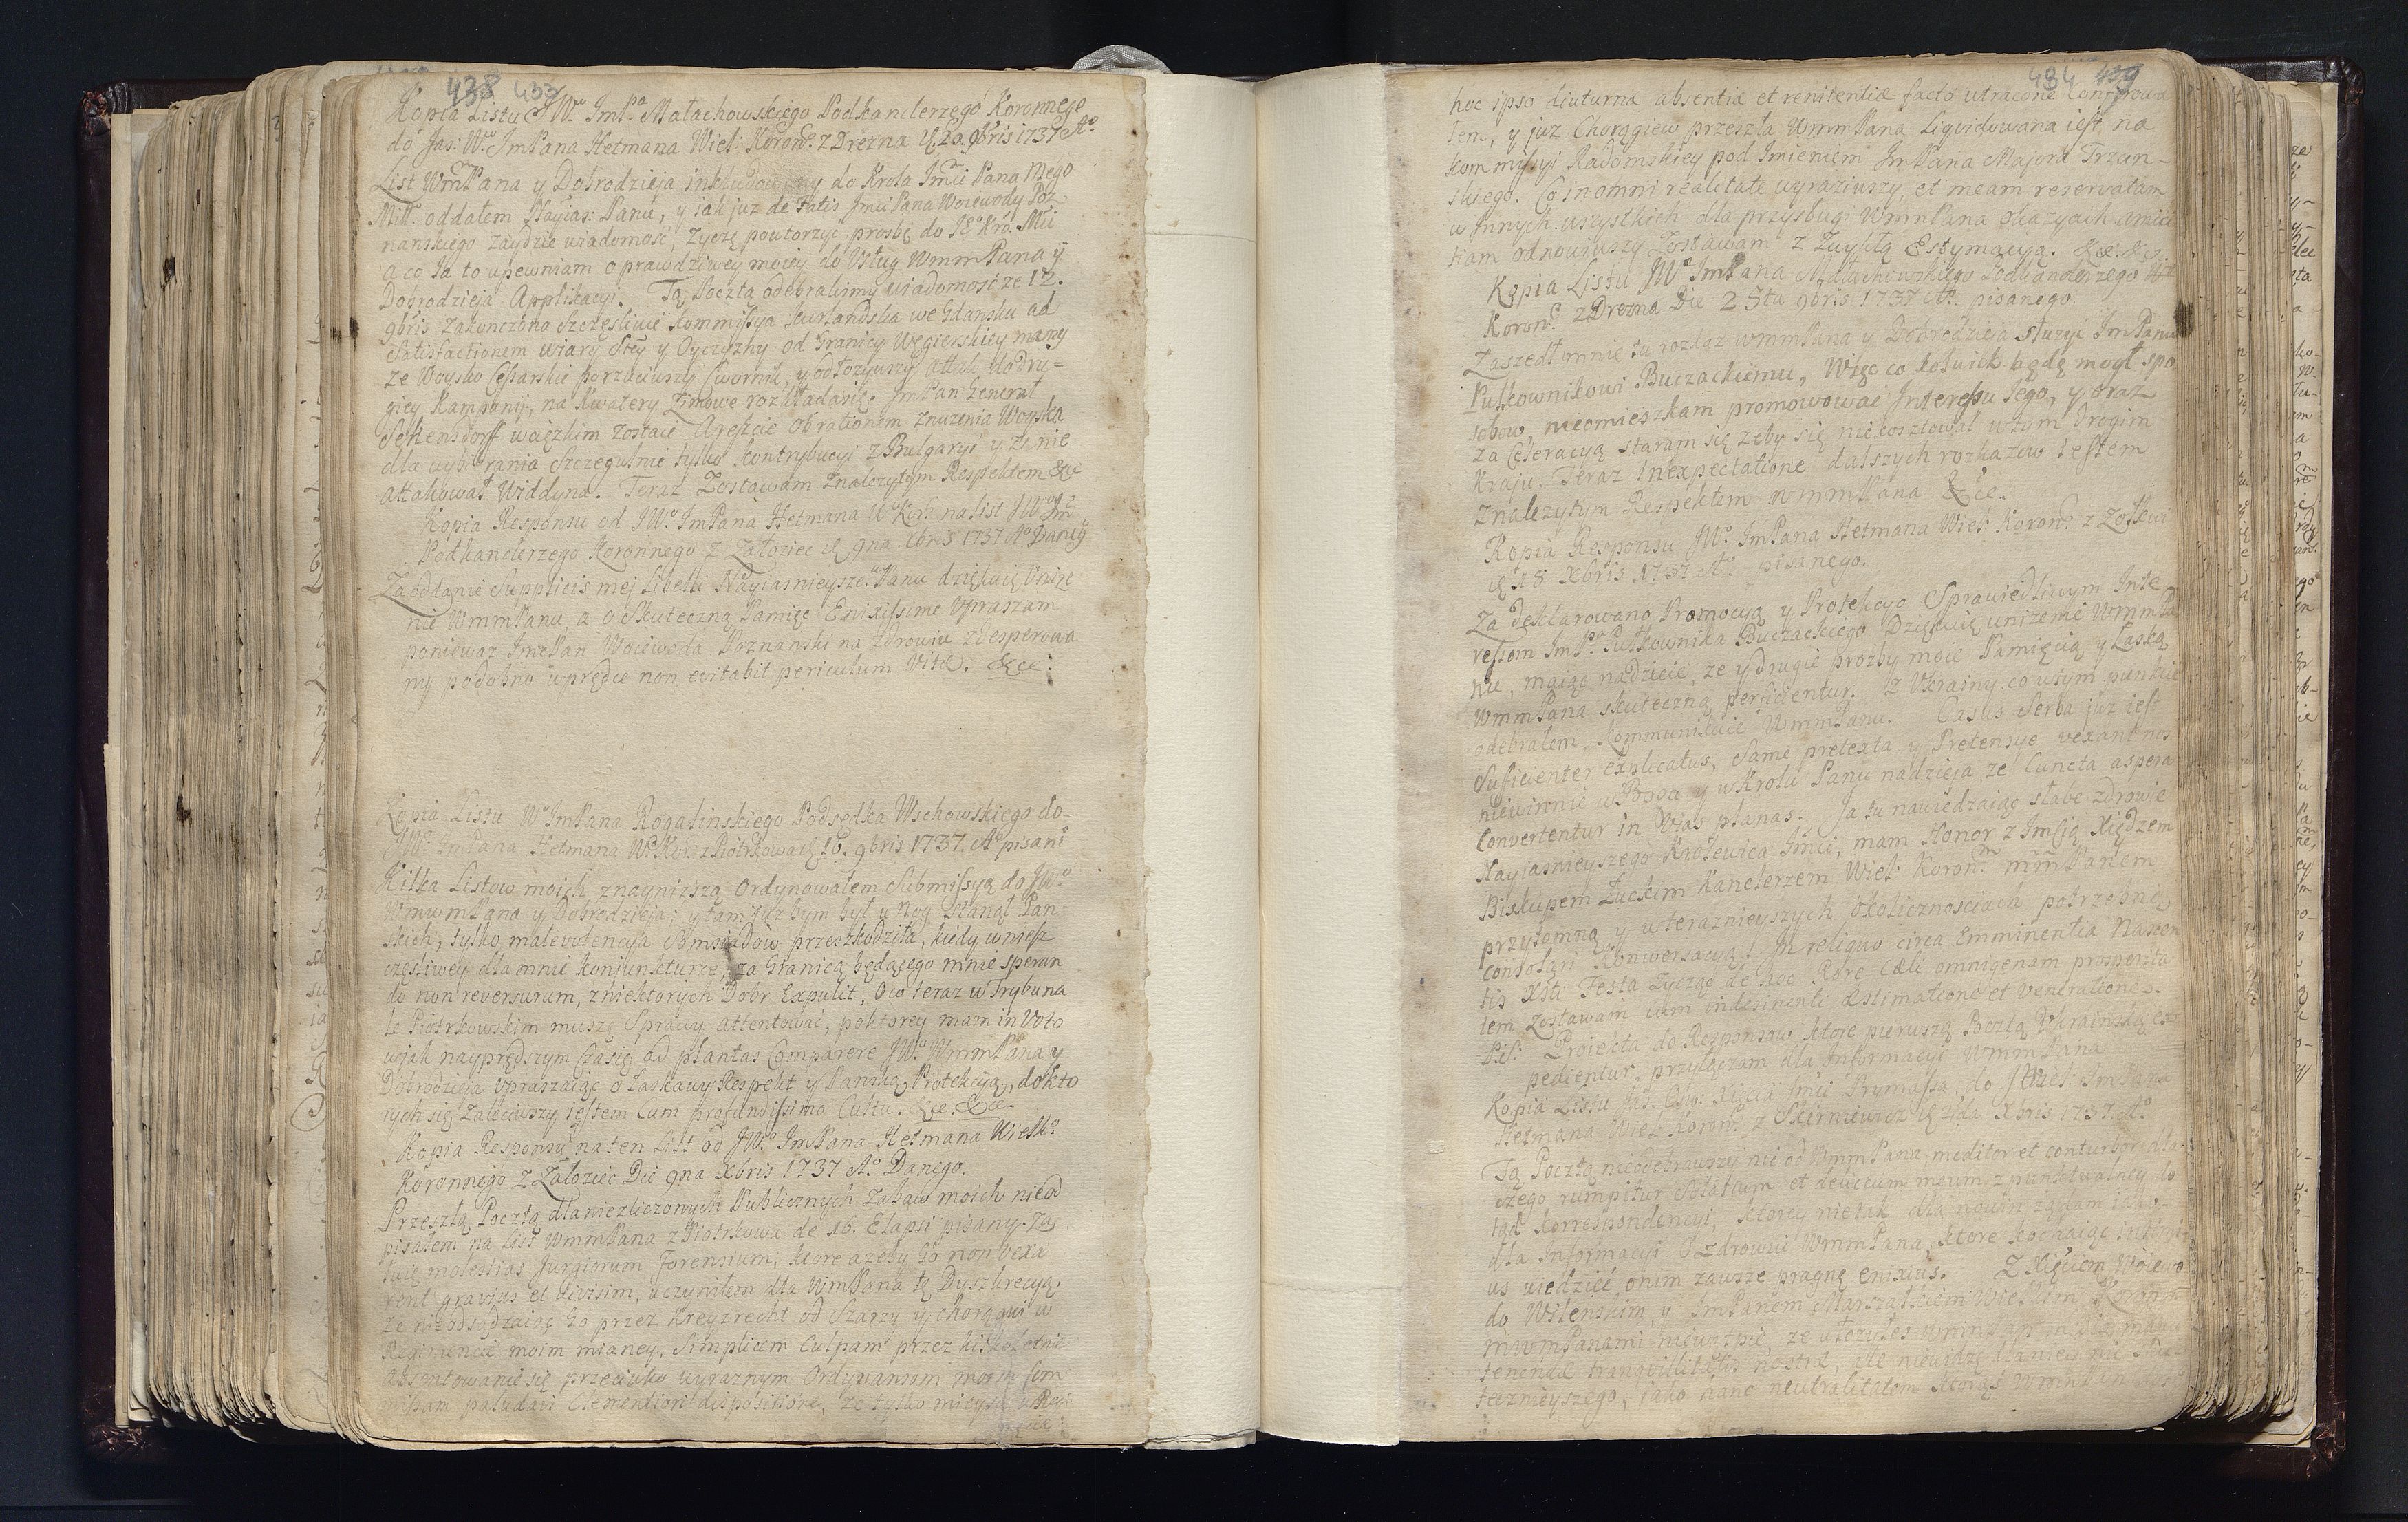 438 433
Kopia Listu JWº Imªpa Małachowskiego Podkanclerzego Koronnego
do Jas: Wº ImPana Hetmana Wiel: Koronº z Drezna 9bris 1737 Aº
List WmPana y Dobrodzieja inkludowany do Krola Jmci Pana mego
Miłº oddałem Nayias: Panu, y iak juz de Fatis Jmci Pana Woiewody Poz
nanskiego Zaydzie wiadomość, Zyczę powtorzyc prosbę do Jº Kró. Mci
a co Ja to upewniam o prawdziwey moiey do Usług WmmPana y
Dobrodzieja Applikacyi. Tą Pocztą odebralismy wiadomość ze 12.
9bris zakonczona Szczęsliwie Kommissya Kurlandska we Gdansku ad
Satisfactionem wiary Stey y Oyczyzny od Granicy Węgierskiey mamy
ze Woysko Cesarskie porzuciwszy Zwornik, y odłozywszy attak do dru=
giey Kampanij, na Kwatery Zimowe rozkłada się. JmPan Generał
Sekendorff w cięzkim zostaie Areszcie ob rationem Znuzenia Woyska
dla wybierania Szczegulnie tylko kontrybucyi z Bulgaryi y ze nie
attakował Widdyna. Teraz Zostawam Znalezytym Respektem &c
Kopia Responsu od JWº ImPana Hetmana Wº Korº na list JWº Jmci
Podkanclerzego Koronnego z Załoziec 9na Xbris 1737 Aº Danÿ
Za oddanie Supplicis mej Libelli Nayiasnieysze: Panu dziękuię Unize
nie WmmPanu, a o Skuteczną Pamięc Enixissime Upraszam
poniewaz JmcPan Woiewoda Poznanski na Zdrowiu zdesperowa
ny podobno wprędce non evitabit periculum Vitæ. &ce:
Kopia Listu Wº ImPana Rogalinskiego Podsędka Wschowskiego do
JWº ImPana Hetmana Wº Korº z Piotrkowa 16. 9bris 1737. Aº pisanº
Kilka Listow moich z nayniższą ordynowałem Submissyą do JWº
WmwmPana y Dobrodzieja; y tam juz bym był u Nog stanął Pan=
skich, tylko malevolencyja Somsiadow przeszkodziła, kiedy w niesz
częsliwey dla mnie konjunkturze, za Granicą będącego mnie speran
do non reversurum, z niektorych Dobr Expulit, O co teraz w Trybuna
le Piotrkowskim muszę Sprawy attentować, po ktorey mam in Voto
w jak nayprędszym Czasie ad plantas Comparere JWº WmmPana y
Dobrodzieja Upraszaiąc o łaskawy Respekt y Panską Protekcyą, do kto
rych się Zaleciwszy iestem Cum profundissimo Cultu. &ce. &ce.
Kopia Responsu na ten List od JWº ImPana Hetmana Wielkº
Koronnego z Załoziec Die 9na Xbris 1737 Aº Danego.
Przeszłą Pocztą dla niezliczonych Publicznych Zabaw moich nie od
pisałem na List WmmPana z Piotrkowa de 16. Elapsi pisany. Za
łuię molestias Jurgiorum Forensium, ktore azeby Go non vexa
rent gravius et divisim, uczyniłem dla WmPana tę Dyszkrecyą,
ze nieodsądzaiąc Go przez Kreyzrecht od Szarzy y Chorągwi w
Regimencie moim mianey, Simplicem Culpam przez kilkoletnie
absentowanie się przeciwko wyraznym Ordynansom moim Com
missam paludavi Clementiori dispositione, ze tylko mieysce w Regi
mencie
434 439
hoc ipso diuturna absentia et renitentia facto utracone Conferowa
łem, y juz Chorągiew przeszła WmmPana Liqvidowana iest na
kommysyi Radomskiey pod Imieniem JmPana Majora Trzcin=
skiego. Co in omni realitate wyraziwszy, et meam reservatam
w Jnnych wszystkich dla przysługi WmmPana okazyach amici
tiam odnowiwszy Zostawam z Zwykłą Estymacyą. &ce. &c.
Kopia Listu JWº ImPana Małachowskiego Podkanclerzego Wº
Koronº z Drezna Die 25ta 9bris 1737 Aº pisanego.
Zaszedł mnie tu rozkaz WmmPana y Dobrodzieja słuzyć ImPanu
Pułkownikowi Buczackiemu, Więc co kolwiek będę mogł spo
sobow, nieomieszkam promowować Interessu Jego, y oraz
za Celeracyą staram się zeby się nie kosztował w tym Drogim
Kraju. Teraz inexpectatione dalszych rozkazow iestem
Znalezytym Respektem WmmPana &ce.
Kopia Responsu JWº ImPana Hetmana Wiel: Koronº z Zołkwi
18 Xbris 1737 Aº pisanego.
Za deklarowaną Promocyą y Protekcyą Sprawiedliwym Inte
ressom Impª Pułkownika Buczackiego Dziękuię unizenie WmmPa
nu, maiąc nadzieie, ze y drugie prozby moie Pamięcią y Łaską
WmmPana skuteczną perficientur. Z Ukrainy co w tym punkcie
odebrałem, Kommunikuię WmmPanu. Casus Serba juz iest
Suficienter explicatus, Same pretexta y Pretensye vexant nis
niewinnie w Bogu y w Krolu Panu nadzieja, ze Cuncta aspera
Convertentur in Vias planas. Ja tu nawiedzaiąc słabe zdrowie
Nayiasnieyszego Krolewica Jmci, mam Honor z Jmscią Xiędzem
Biskupem Łuckim Kanclerzem Wiel: Koronº mmPanem
przytomną y w teraznieyszych okolicznosciach potrzebną
Consolari Konwersacyą! In reliquo circa Emminentia Nascen
tis Xsti Festa Zycząc de hoc Rore Cæli omnigenam prosperita
tem Zostawam cum indesinenti æstimatione et veneratione.
PS: Projekta do Responsow, ktore pierwszą Pocztą Ukrainską ex
pedientur, przyłączam dla Informacyi WmmPana
Kopia Listu Jas. Osw: Xięcia Jmci Prymassa do JWiel: ImPana
Hetmana Wiel: Koronº z Skierniewicz Xbris 1737. Aº
Tą Pocztą nieodebrawszy nic od WmmPana meditor et conturbor dla
czego rumpitur solatium et delicium meum z punktualney do
tąd Korrespondencyi, ktorey nie tak dla nowin ządam iako
dla Informacyi o zdrowiu WmmPana, ktore kochaiąc intimi
us wiedzieć onim zawsze pragnę enixius. Z Xięciem Woiewo
dą Wilenskim y ImPanem Marszałkiem Wielkim Koronº
mwmPanami niewątpię, ze
tenendæ tranquillitatis nostræ, ale niewidzę nic sku
tecznieyszego, iako hanc neutralitatem ktorąś WmmPan